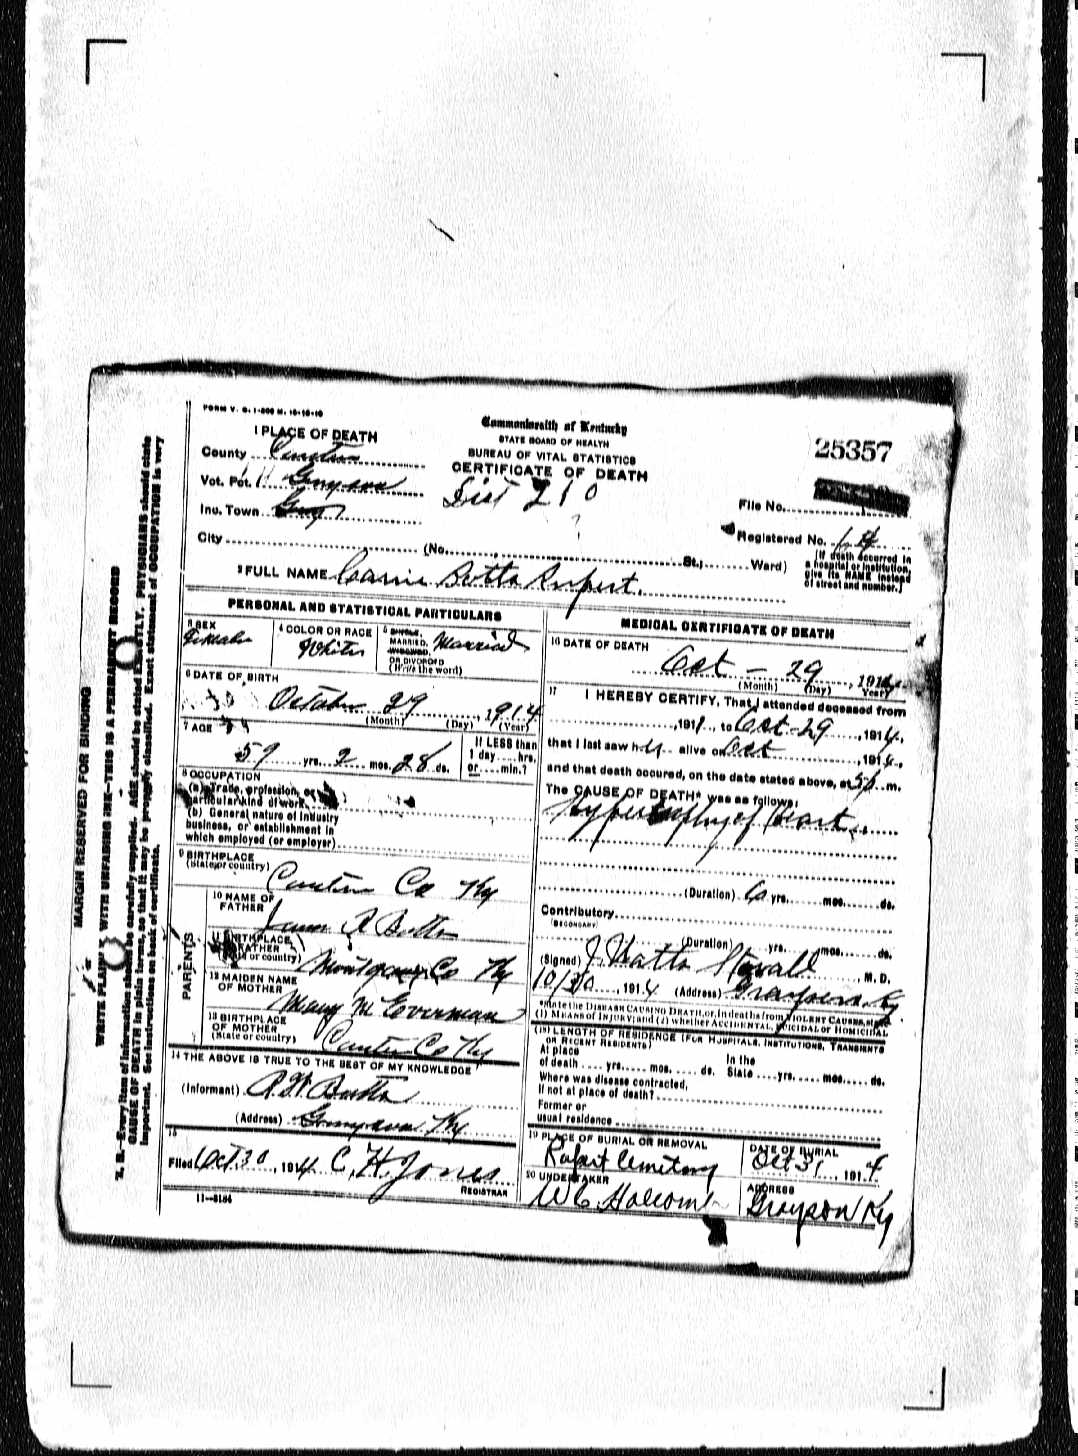 FORM V. S. 1-200 M. 10-10-10
Commonwealth of Kentucky
STATE BOARD OF HEALTH
BUREAU OF VITAL STATISTICS
CERTIFICATE OF DEATH
Dist 210
25357
File No.
Registered No. 14
[If death occurred in a hospital or institution, give its NAME instead of street and number.]
1 PLACE OF DEATH
County Carter
Vot. Pct. Grayson
Inc. Town
City (No. St.; Ward)
2 FULL NAME Carrie Botts Rupert.
PERSONAL AND STATISTICAL PARTICULARS
3 SEX Female
4 COLOR OR RACE White
5 SINGLE, MARRIED, WIDOWED, OR DIVORCED (Write the word) Married
6 DATE OF BIRTH
October 29, 1914
(Month) (Day) (Year)
7 AGE
59 yrs. 2 mos. 28 ds.
If LESS than 1 day hrs. or min.?
8 OCCUPATION
(a) Trade, profession, or particular kind of work
(b) General nature of industry
business, or establishment in
which employed (or employer)
9 BIRTHPLACE
(State or country) Carter Co Ky
PARENTS
10 NAME OF FATHER James R Botts
11 BIRTHPLACE OF FATHER (State or country) Montgomery Co Ky
12 MAIDEN NAME OF MOTHER Mary M Everman
13 BIRTHPLACE OF MOTHER (State or country) Carter Co Ky
14 THE ABOVE IS TRUE TO THE BEST OF MY KNOWLEDGE
(Informant) Botts
(Address) Grayson Ky
15
Filed Oct 30, 1914 C. H. Jones
REGISTRAR
11-3184
MEDICAL CERTIFICATE OF DEATH
16 DATE OF DEATH
Oct - 29, 1914
(Month) (Day) (Year)
17 I HEREBY CERTIFY, That I attended deceased from
, 191 , to Oct-29, 1914,
that I last saw her alive on Oct , 1914,
and that death occured, on the date stated above, at m.
The CAUSE OF DEATH* was as follows:
Hypertrophy of Heart
(Duration) 6 yrs. mos. ds.
Contributory
(SECONDARY)
(Duration) yrs. mos. ds.
(Signed) J. Watts Stovall M. D.
10/30, 1914 (Address) Grayson Ky
*State the DISEASE CAUSING DEATH, or, in deaths from VIOLENT CAUSES, state
(1) MEANS OF INJURY; and (2) whether ACCIDENTAL, SUICIDAL or HOMICIDAL.
(18) LENGTH OF RESIDENCE (FOR HOSPITALS, INSTITUTIONS, TRANSIENTS
OR RECENT RESIDENTS)
At place of death yrs. mos. ds. In the State yrs. mos. ds.
Where was disease contracted,
If not at place of death?
Former or
usual residence
19 PLACE OF BURIAL OR REMOVAL
Rupert Cemetery
DATE OF BURIAL
Oct 31, 1914
20 UNDERTAKER
W C Holcomb
ADDRESS
Grayson Ky
MARGIN RESERVED FOR BINDING
WRITE PLAINLY WITH UNFADING INK—THIS IS A PERMANENT RECORD
N. B.—Every item of information should be carefully supplied. AGE should be stated EXACTLY. PHYSICIANS should state
CAUSE OF DEATH in plain terms, so that it may be properly classified. Exact statement of OCCUPATION is very
important. See instructions on back of certificate.